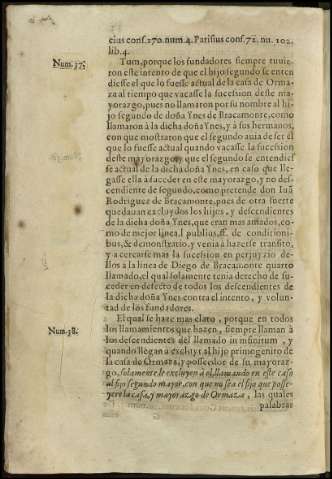 eius cons. 270. num. 4. Parisius cons. 72. nu. 102.
lib. 4.
Num. 37.
Tum, porque los fundadores siempre tuuie-
ron este intento de que el hijo segundo se enten
diesse el que lo fuesse actual de la casa de Orma-
za al tiempo que vacasse la sucession deste ma
yorazgo, pues no llamaron por su nombre al hi-
jo segundo de doña Ynes de Bracamonte, como
llamaron à la dicha doña Ynes, y à sus hermanos,
con que mostraron que el segundo auia de ser el
que lo fuesse actual quando vacasse la sucession
deste mayorazgo, y que el segundo se entendies
se actual de la dicha doña Ynes, en caso que lle-
gasse ella à suceder en este mayorazgo, y no des-
cendiente de segundo, como pretende don Iuã
Rodriguez de Bracamonte, pues de otra suerte
quedauan excluydos los hijos, y descendientes
de la dicha doña Ynes, que eran mas amados, co-
mo de mejor linea, l. publius, ff. de conditioni-
bus, & demonstratio. y venia à hazerse transito,
y acercarse mas la sucession en perjuyzio de-
llos à la linea de Diego de Bracamonte quarto
llamado, el qual solamente tenia derecho de su-
ceder en defecto de todos los descendientes de
la dicha doña Ynes contra el intento, y volun-
tad de los fundadores.
Num. 38.
El qual se haze mas claro, porque en todos
los llamamientos que hazen, siempre llaman à
los descendientes del llamado in infinitum, y
quando llegan à excluyr al hijo primogenito de
la casa de Ormaza, y posseedor de su mayoraz-
go, solamente le excluyen à el, llamando en este caso
al hijo segundo mayor, con que no sea el hijo que posse-
yere la casa, y mayorazgo de Ormaza, las quales
palabras